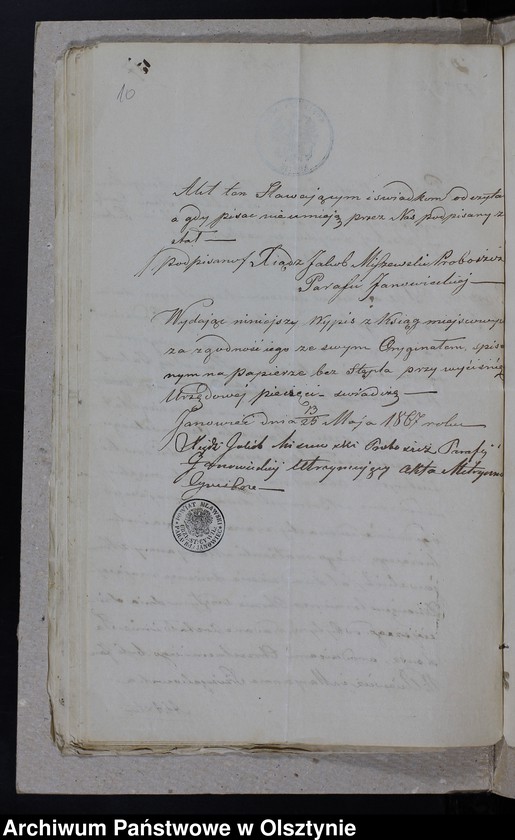 10
Akt ten Stawającym i świadkom odczyta
a gdy pisać nieumieją przez Nas podpisany z
stał
/podpisano/ Xiądz Jakub Miszewski Proboszcz
Parafii Janowieckiej
Wydając niniejszy Wypis z Ksiąg miejscowy
za zgodność jego ze swym Oryginałem, spisa
nym na papierze bez Stępla przy wyciśnię
Urzędowej pieczęci świadczę
Janowiec dnia 13/25 Maja 1867 roku
Xiądz Jakub Proboszcz Parafii
Janowieckiej Utrzymujący Akta
Cywilne
POWIAT MŁAWSKI
PARAFIA JANOWIEC
Archiwum Państwowe w Olsztynie